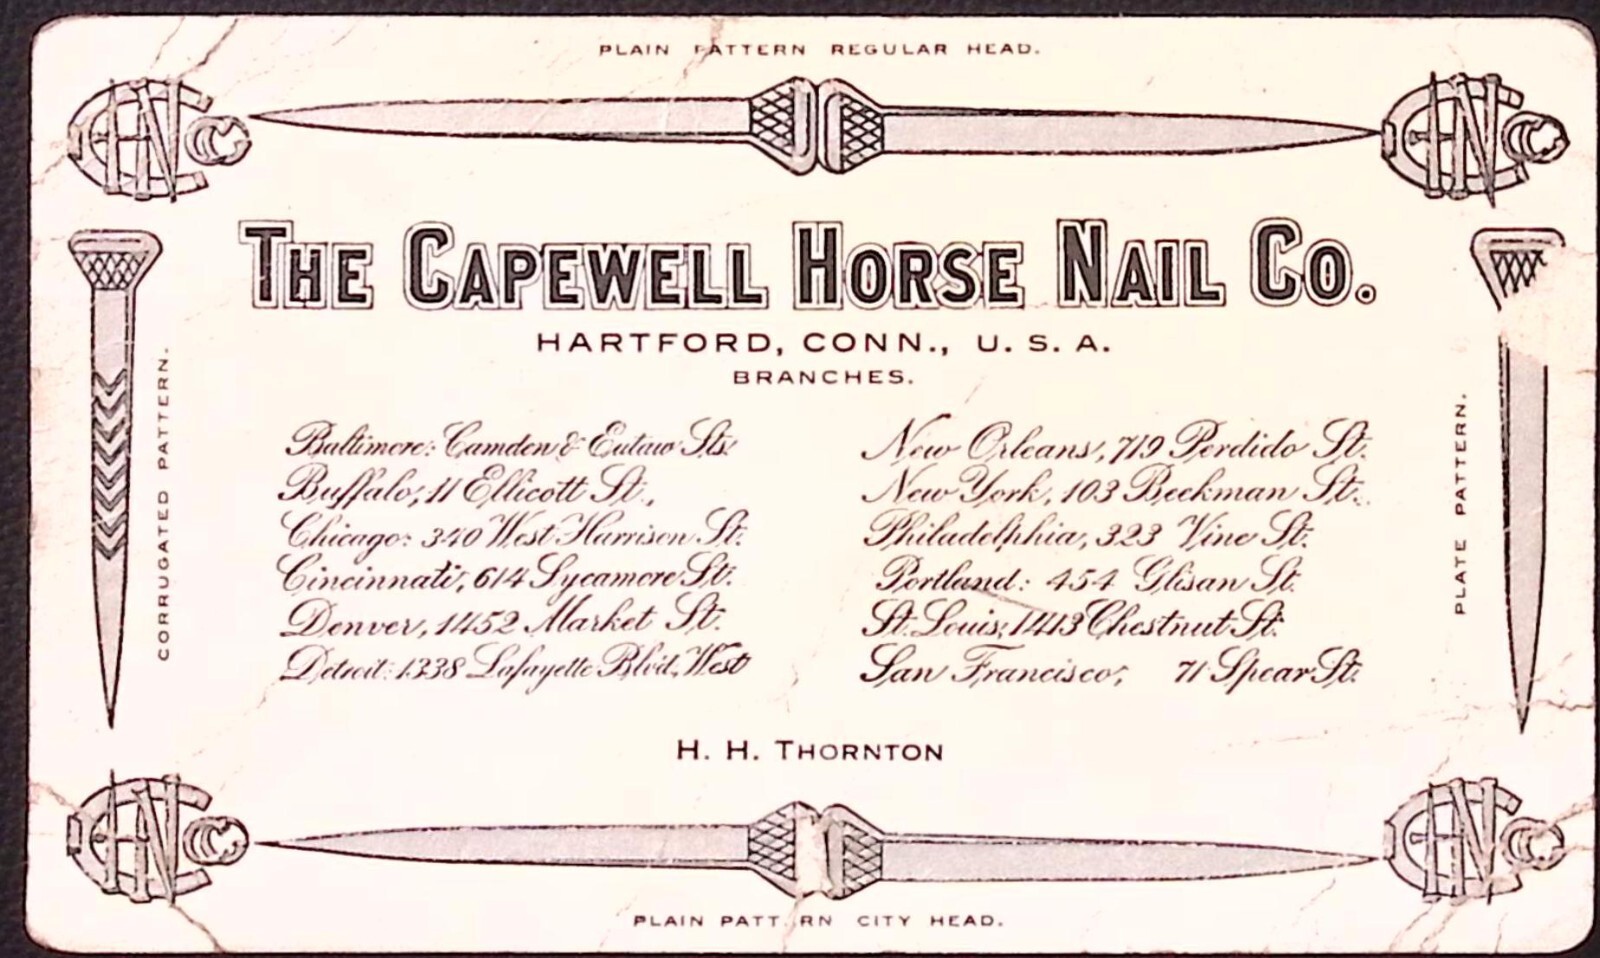 PLAIN PATTERN REGULAR HEAD.
THE CAPEWELL HORSE NAIL CO.
HARTFORD, CONN., U. S. A.
BRANCHES.
Baltimore: Camden & Eutaw Sts.
Buffalo, 11 Ellicott St.,
Chicago: 340 West Harrison St.
Cincinnati, 614 Sycamore St.
Denver, 1452 Market St.
Detroit: 1338 Lafayette Blvd, West
New Orleans, 719 Perdido St.
New York, 103 Beekman St.
Philadelphia, 323 Vine St.
Portland: 454 Glisan St.
St. Louis, 1413 Chestnut St.
San Francisco, 71 Spear St.
CORRUGATED PATTERN.
PLATE PATTERN.
H. H. THORNTON
PLAIN PATT RN CITY HEAD.
CHN Co
CHN Co
CHN Co
CHN Co